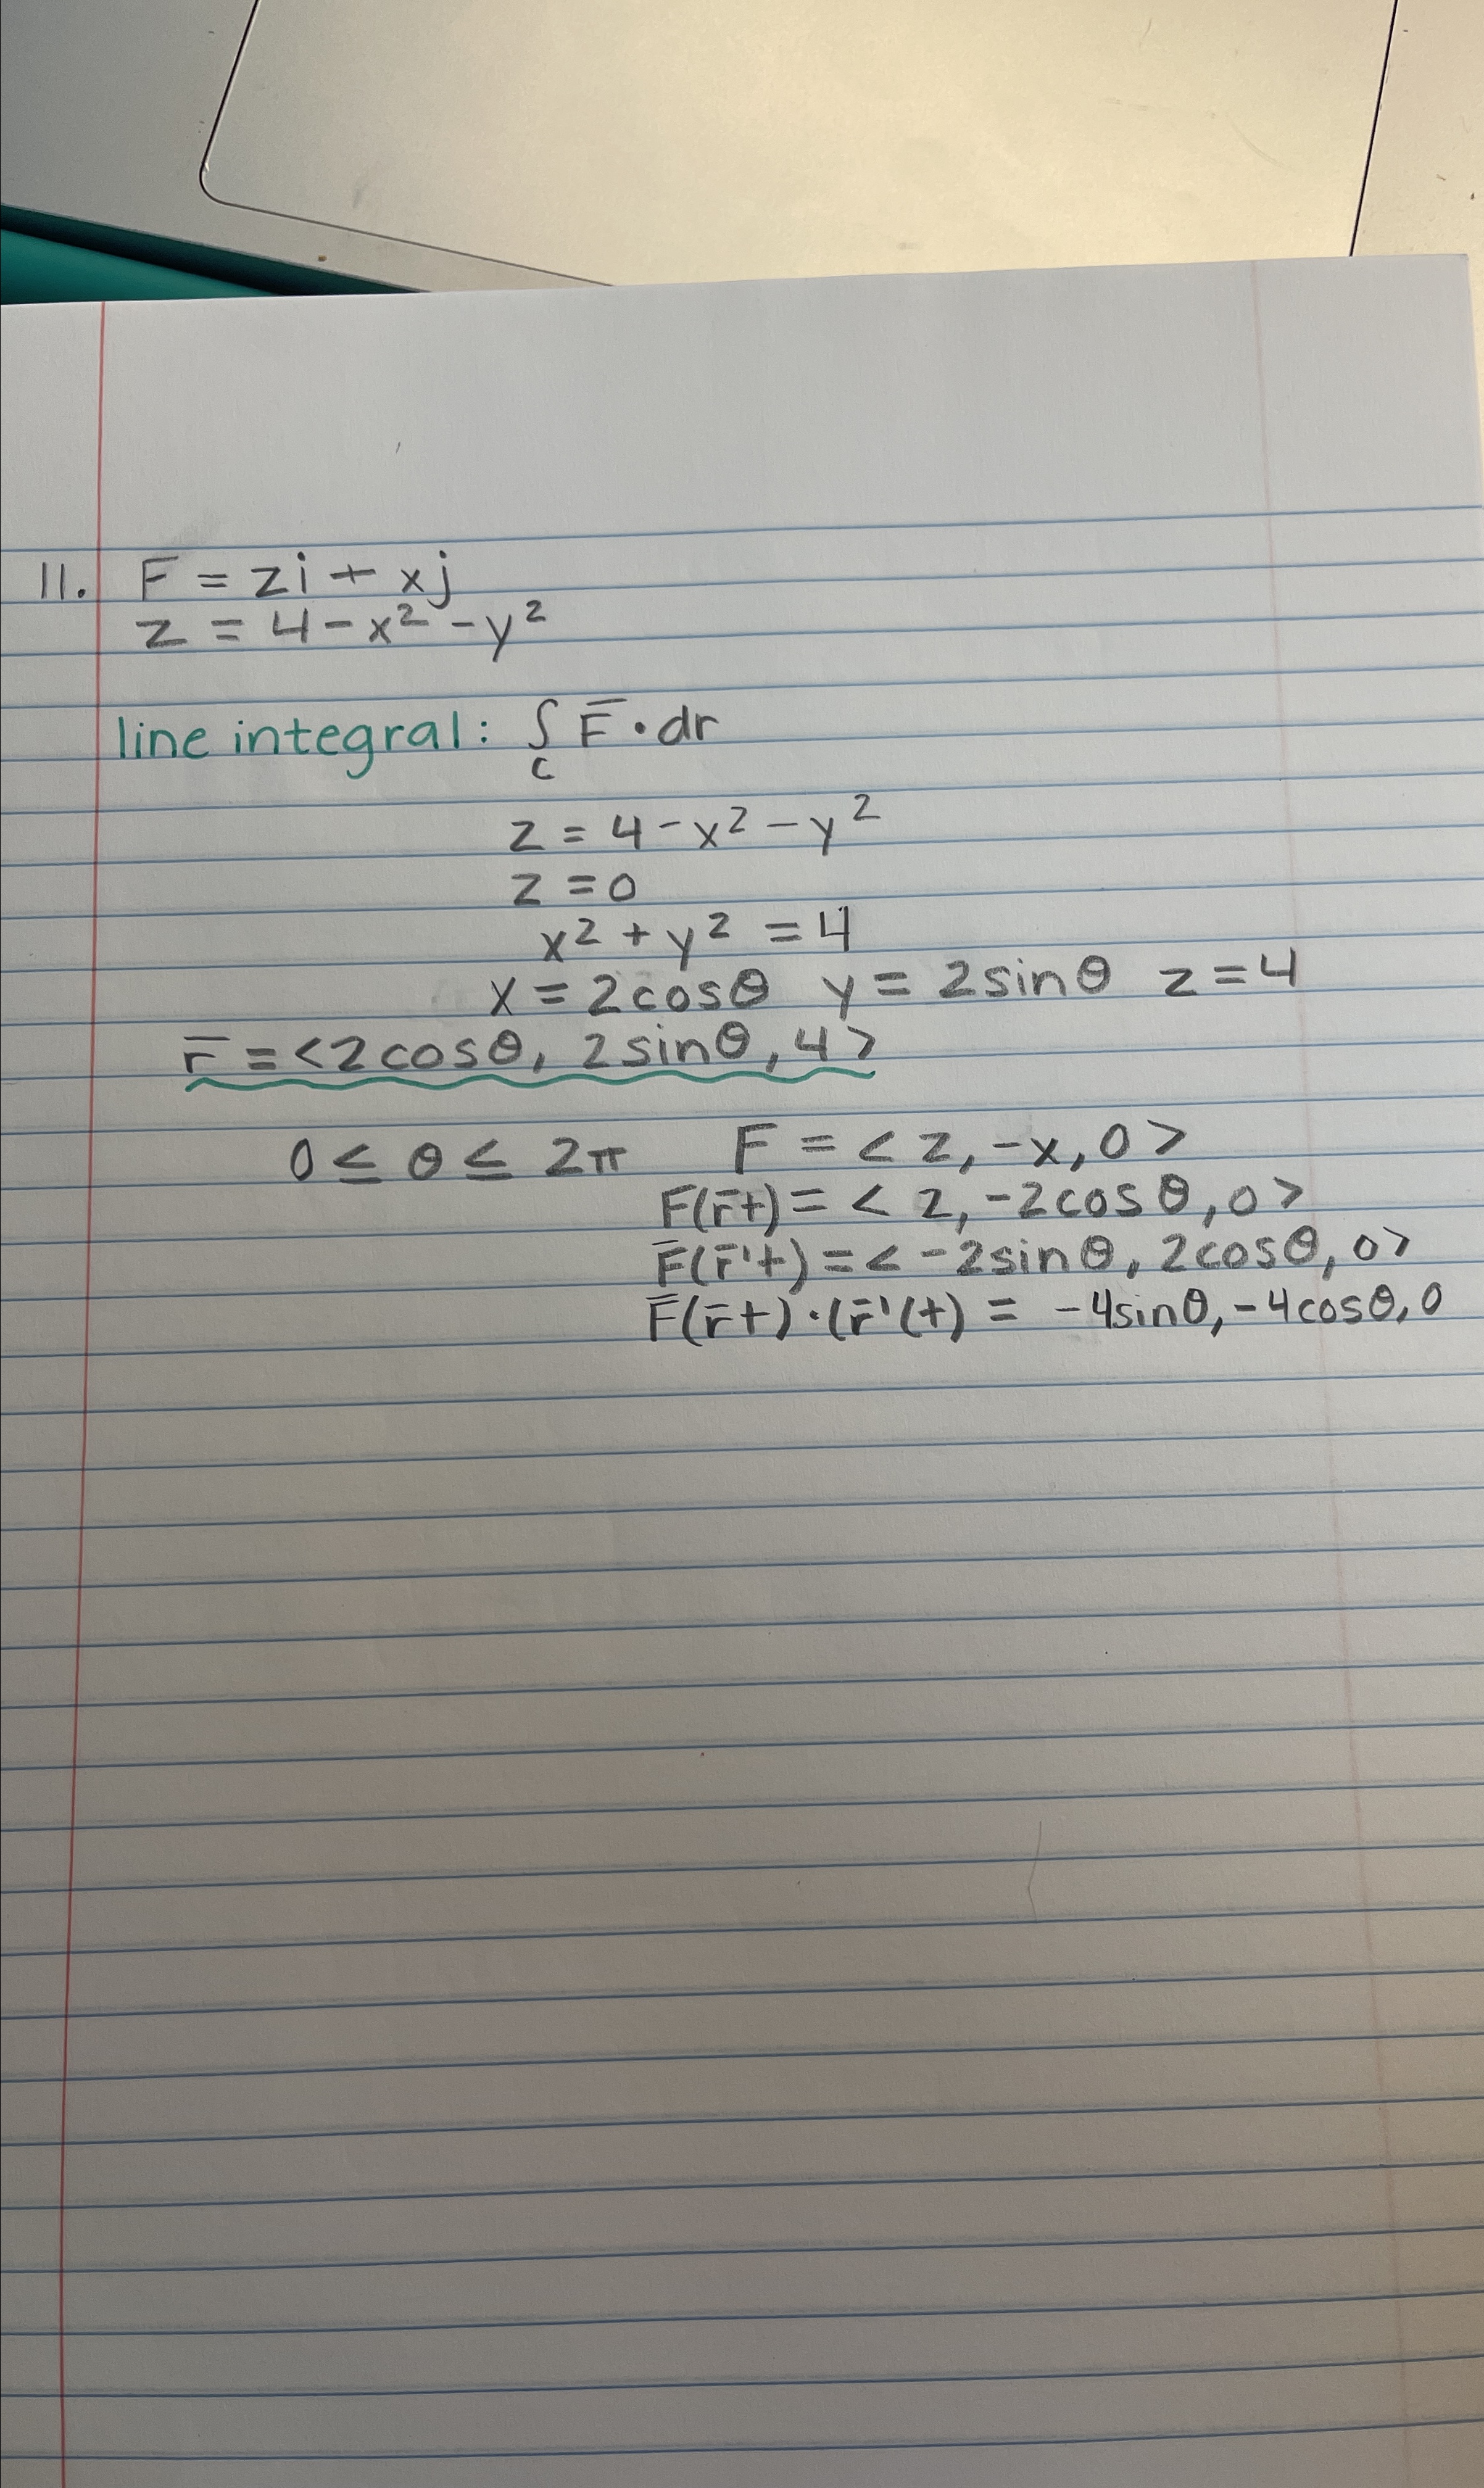 11. F = zi + xj
z = 4 - x² - y²
line integral: ∫ F̄ • dr
C
z = 4 - x² - y²
z = 0
x² + y² = 4
x = 2cosθ y = 2sinθ z = 4
r̄ = <2cosθ, 2sinθ, 4>
0 ≤ θ ≤ 2π F = < z, -x, 0 >
F(r̄t) = < z, -2cosθ, 0 >
F̄(r̄'t) = < -2sinθ, 2cosθ, 0>
F̄(r̄t) • (r̄'(t) = -4sinθ, -4cosθ, 0